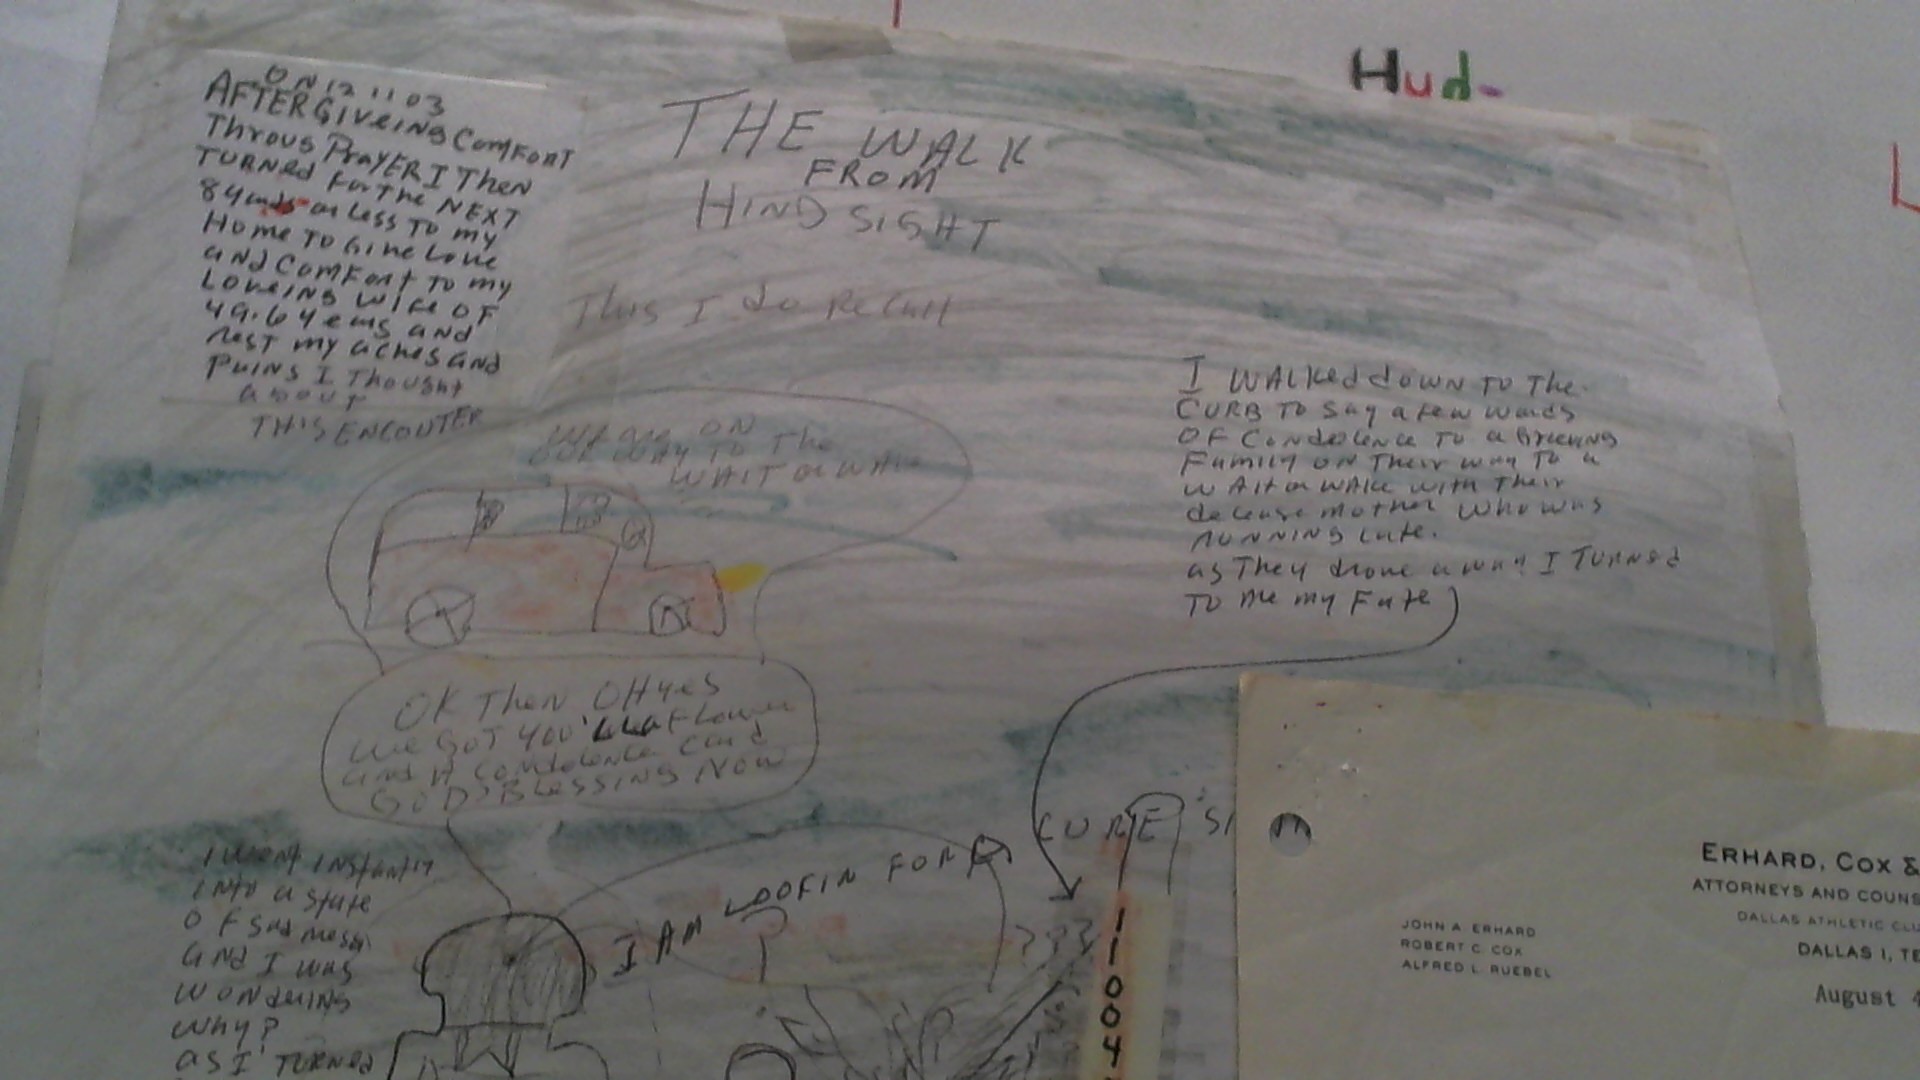 Hud-
ON 12 11 03
AFTER GIVEING COMFORT
Throug PrayER I Then
TURNED for THE NEXT
84 or Less TO my
Home TO Give Love
and Comfort TO my
Loveing wife OF
49.6 Yers and
rest my aches and
Pains I Thought
about
THIS ENCOUTER
THE WALK
FROM
HIND SIGHT
This I do Recall
We are ON
OUR WAY TO The
WAIT or WAKE
I WALKed down TO The
CURB TO Say a few words
OF Condolence TO a Grieving
Family on Their way TO a
WAIT or WAKE with Their
decease mother who was
RUNNING Late.
as They drove away I TURNed
TO me my Fate
OK Then OH yes
we GOT YOU a Flower
and A Condolence Card
GOD'S Blessing Now
I went instantly
into a state
OF sadness
and I was
wondering
why?
as I TURNed
I AM LOOFIN FOR
? ? ?
1
1
0
0
4
ERHARD, COX &
ATTORNEYS AND COUNS
DALLAS ATHLETIC CLU
DALLAS 1, TE
JOHN A. ERHARD
ROBERT C. COX
ALFRED L. RUEBEL
August 4